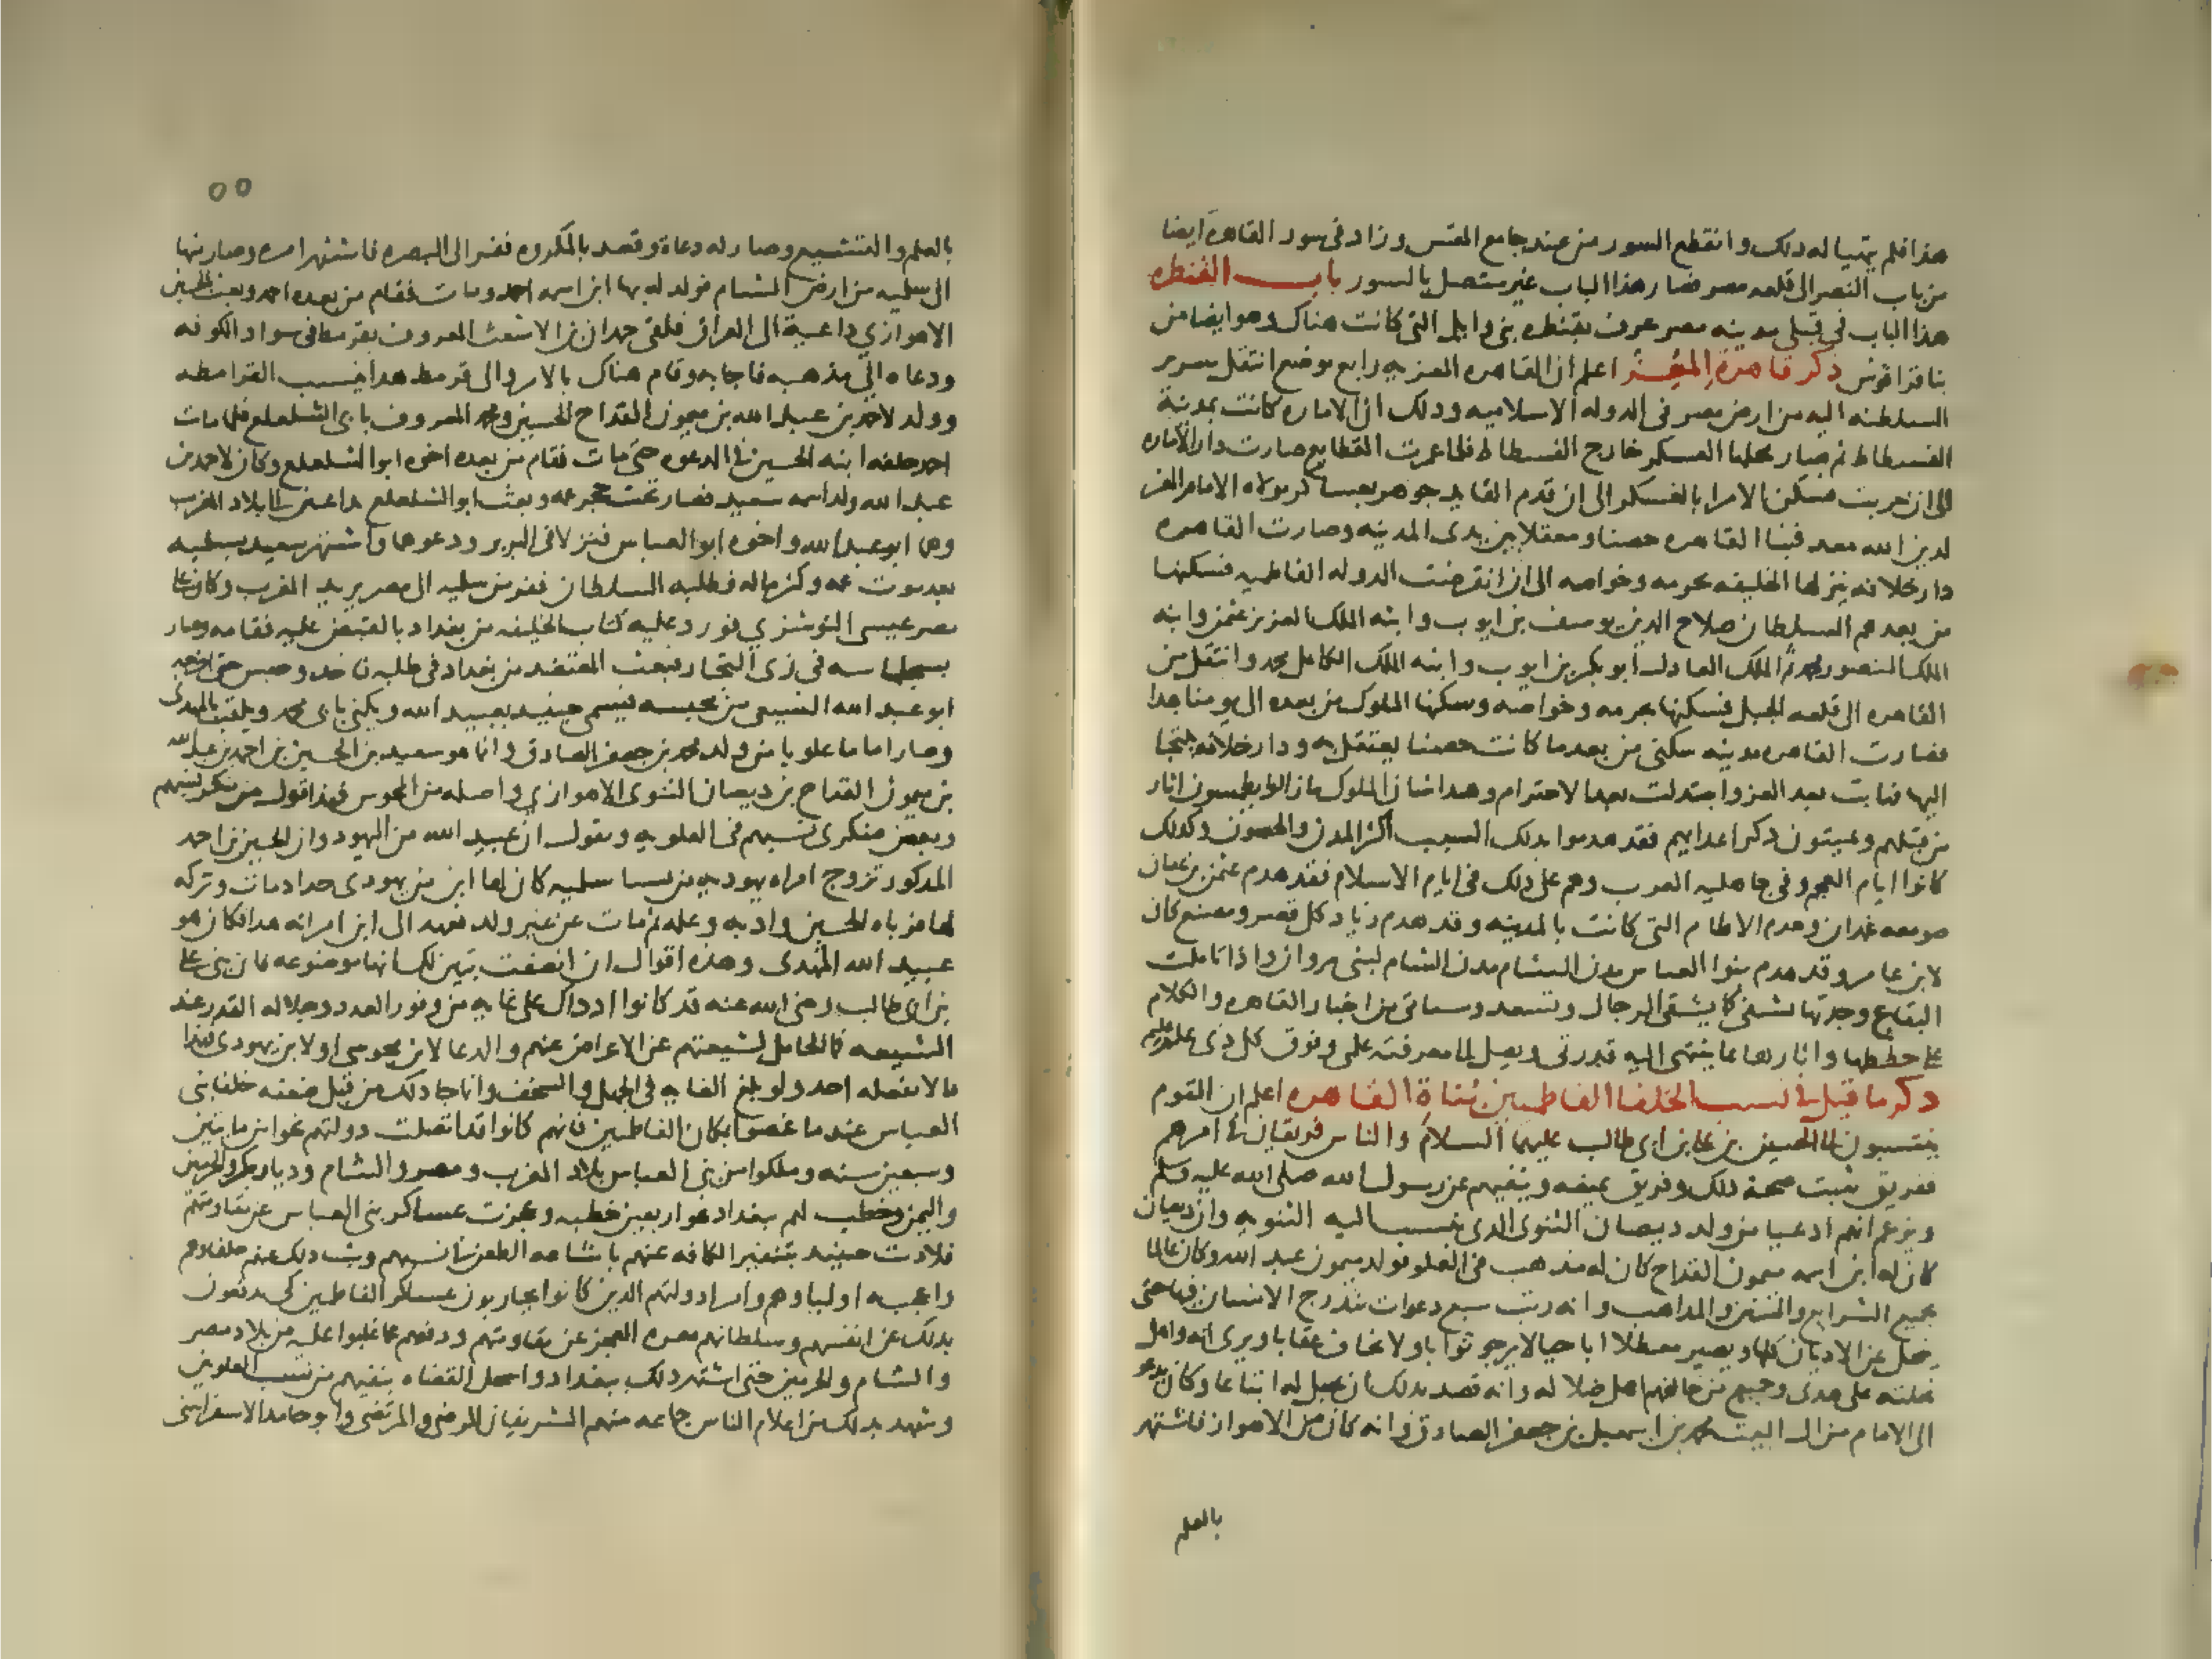 هذا فلم يتهيا له ذلك وانقطع السور من عند جامع المقس وزاد في سور القاهرة ايضا
من باب النصر الى قلعه مصر فصار هذا الباب غير متصل بالسور باب القنطره
هذا الباب في قبلي مدينه مصر عرف بقنطره بني وايل التي كانت هناك وهو ايضا من
بنا قراقوش ذكر قاهرة المعز اعلم ان القاهره المعزيه رابع موضع انتقل سرير
السلطنه اليه من ارض مصر في الدوله الاسلاميه وذلك ان الاماره كانت بمدينة
الفسطاط ثم صار محلها العسكر خارج الفسطاط فلما عمرت القطايع صارت دار الاماره
الى ان خربت فسكن الامرا بالعسكر الى ان قدم القايد جوهر بعساكر مولاه الامام المعز
لدين الله معد فبنا القاهره حصنا ومعقلا بين يدي المدينه وصارت القاهره
دار خلافه ينزلها الخليفه بحرمه وخواصه الى ان انقرضت الدوله الفاطميه فسكنها
من بعدهم السلطان صلاح الدين يوسف بن ايوب وابنه الملك العزيز عثمن وابنه
الملك المنصور محمد ثم الملك العادل ابو بكر بن ايوب وابنه الملك الكامل محمد وانتقل من
القاهره الى قلعه الجبل فسكنها بحرمه وخواصه وسكنها الملوك من بعده الى يومنا هذا
فصارت القاهره مدينه سكنى من بعد ما كانت حصنا يعتقل به ودار خلافه يلتجا
اليها فبانت بعد العز وابتذلت بعد الاحترام وهذا شان الملوك ما زالوا يطمسون اثار
من قبلهم ويميتون ذكر اعدايهم فقد هدموا بذلك السبب اكثر المدن والحصون وكذلك
كانوا ايام العجم وفي جاهليه العرب وهم على ذلك في ايام الاسلام فقد هدم عثمن بن عفان
صومعه غمدان وهدم الاطام التي كانت بالمدينه وقد هدم زياد كل قصر ومصنع كان
لابن عامر وقد هدم بنوا العباس مدن الشام مدن الشام لبني مروان واذا تاملت
البقاع وجدتها تشقى كما يشقى الرجال وتسعد وسياتي من اخبار القاهره والكلام
على خططها واثارها ما ينتهي اليه قدرتي ويصل الى معرفته علمي وفوق كل ذي علم عليم
ذكر ما قيل في نسب الخلفا الفاطميين بناة القاهره اعلم ان القوم
ينتسبون الى الحسين بن علي بن ابي طالب عليهما السلام والناس فريقان في امرهم
فريق يثبت صحة ذلك وفريق يمنعه وينفيهم عن رسول الله صلى الله عليه وسلم
ويزعم انهم ادعيا من ولد ديصان الثنوي الذي ينسب اليه الثنويه وان ديصان
كان له ابن اسمه ميمون القداح كان له مذهب في الغلو فولد ميمون عبد الله وكان عالما
بجميع الشرايع والسنن والمذاهب وانه رتب سبع دعوات يتدرج الانسان فيها حتى
ينحل عن الاديان كلها ويصير معطلا اباحيا لا يرجو ثوابا ولا يخاف عقابا ويرى انه واهل
نحلته على هدى وجميع من خالفهم اهل ضلاله وانه قصد بذلك ان يجعل له اتباعا وكان يدعو
الى الامام من ال البيت محمد بن اسمعيل بن جعفر الصادق وانه كان من الاهواز فاشتهر
بالعلم
٥٥
بالعلم والتشيع وصار له دعاة وقصد بالمكروه ففر الى البصره فاشتهر امره وصار منها
الى سلميه من ارض الشام فولد له بها ابن اسمه احمد ومات فقام من بعده احمد وبعث الحسين
الاهوازي داعية الى العراق فلقى حمدان بن الاشعث المعروف بقرمط في سواد الكوفه
ودعاه الى مذهبه فاجابه وقام هناك بالامر والى قرمط هذا ينسب القرامطه
وولد لاحمد بن عبد الله بن ميمون القداح الحسين ومحمد المعروف بابي الشلعلع فلما مات
احمد خلفه ابنه الحسين في الدعوه حتى مات فقام من بعده اخوه ابو الشلعلع وكان لاحمد بن
عبد الله ولد اسمه سعيد فصار تحت حجر عمه وبعث ابو الشلعلع داعيين الى بلاد المغرب
وهما ابو عبد الله واخوه ابو العباس فنزلا في البربر ودعوهما واشتهر سعيد بسلميه
بعد موت عمه وكثر ماله فطلبه السلطان ففر من سلميه الى مصر يريد المغرب وكان على
مصر عيسى النوشزي فورد عليه كتاب الخليفه من بغداد بالقبض عليه ففاته وصار
بسجلماسه في زي التجار فبعث المعتضد من بغداد في طلبه فاخذ وحبس حتى اخرجه
ابو عبد الله الشيعي من محبسه فتسمى حينيد بعبيد الله ويكنى بابي محمد ويلقب بالمهدي
وصار اماما علويا من ولد محمد بن جعفر الصادق وانما هو سعيد بن الحسين بن احمد بن عبد الله
بن ميمون القداح بن ديصان الثنوي الاهوازي واصله من المجوس فهذا قول من ينكر نسبهم
وبعض منكري نسبهم في العلويه ويقول ان عبيد الله من اليهود وان الحسين بن احمد
المذكور تزوج امراه يهوديه من نسا سلميه كان لها ابن من يهودي حداد مات وتركه
لها فرباه الحسين وادبه وعلمه ثم مات عن غير ولد فعهد الى ابن امراته هذا فكان هو
عبيد الله المهدي وهذه اقوال ان انصفت تبين لك انها موضوعه فان بني علي
بن ابي طالب رضى الله عنه قد كانوا اذ ذاك على غايه من وفور العدد وجلاله القدر عند
الشيعه فما الحامل لشيعتهم عن الاعراض عنهم والدعا لابن مجوسي او لابن يهودي فهذا
ما لا يفعله احد ولو بلغ الغايه في الجهل والسخف وانما جا ذلك من قبل ضعفه خلفا بني
العباس عندما غصوا بمكان الفاطميين فانهم كانوا قد اتصلت دولتهم نحوا من مايتين
وسبعين سنه وملكوا من بني العباس بلاد المغرب ومصر والشام وديار بكر والحرمين
واليمن وخطب لهم ببغداد نحو اربعين خطبه وعجزت عساكر بني العباس عن مقاومتهم
فلاذت حينيد بتنفير الكافه عنهم باشاعه الطعن في نسبهم وبث ذلك عنهم خلفاوهم
واعجب به اولياوهم وامرا دولتهم الذين كانوا يحاربون عساكر الفاطميين كي يدفعون
بذلك عن انفسهم وسلطانهم معره العجز عن مقاومتهم ودفعهم عما غلبوا عليه من بلاد مصر
والشام والحرمين حتى اشتهر ذلك ببغداد واسجل القضاه بنفيهم من نسب العلويين
وشهد بذلك من اعلام الناس جماعه منهم الشريفان الرضي والمرتضى وابو حامد الاسفرايني